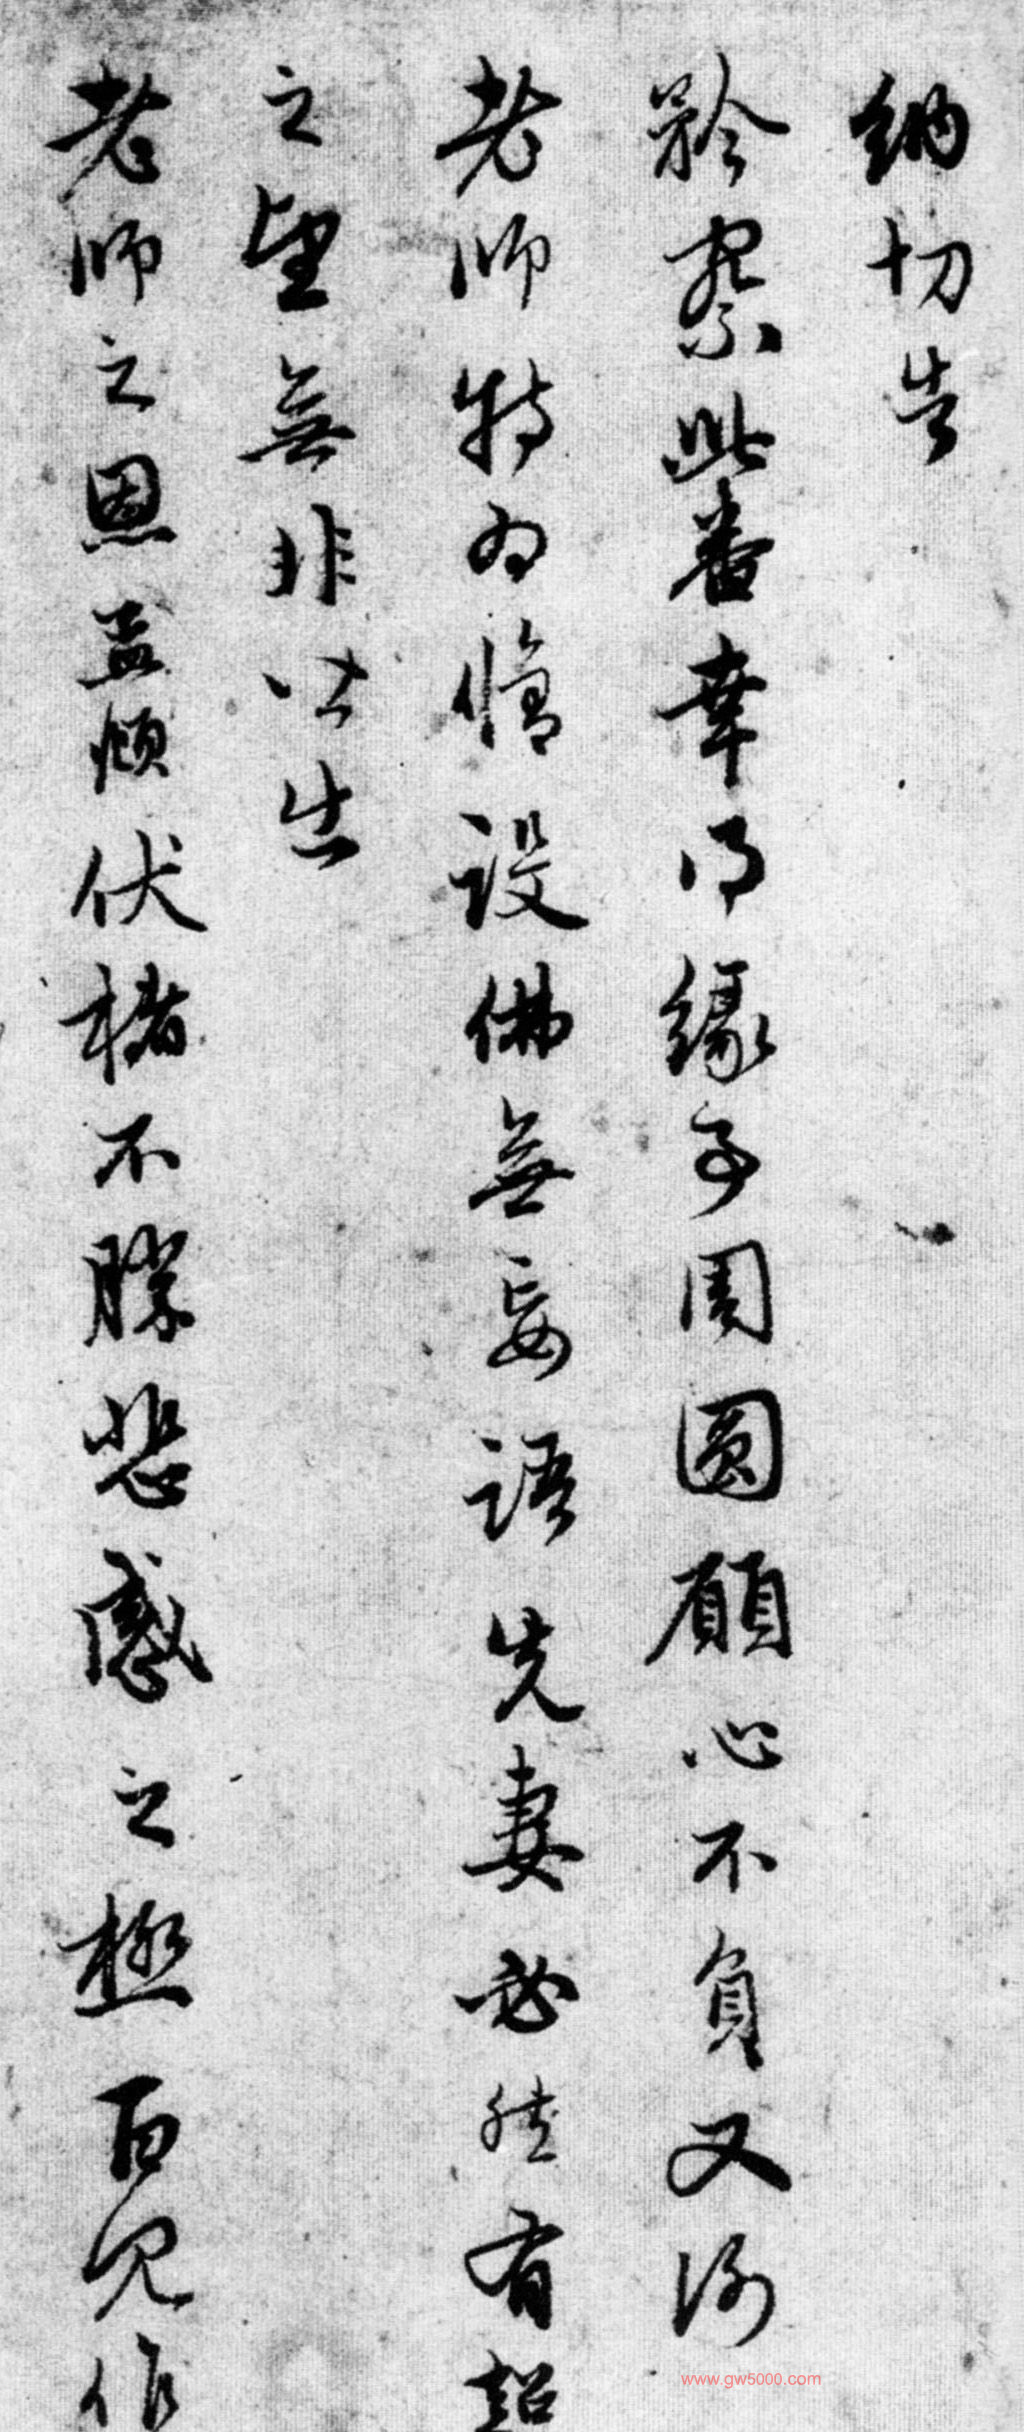 納切告
矜察此番幸得緣子周圓願心不負又
老師特為脩設佛無妄語先妻必然有超
之望無非皆出
老師之恩孟頫伏楮不勝悲感之極百冗作
www.gw5000.com